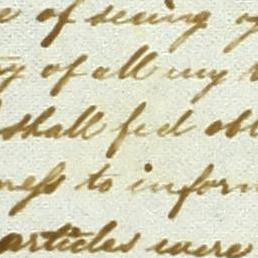 of seeing
of all my
shall feel
ness to inform
articles were